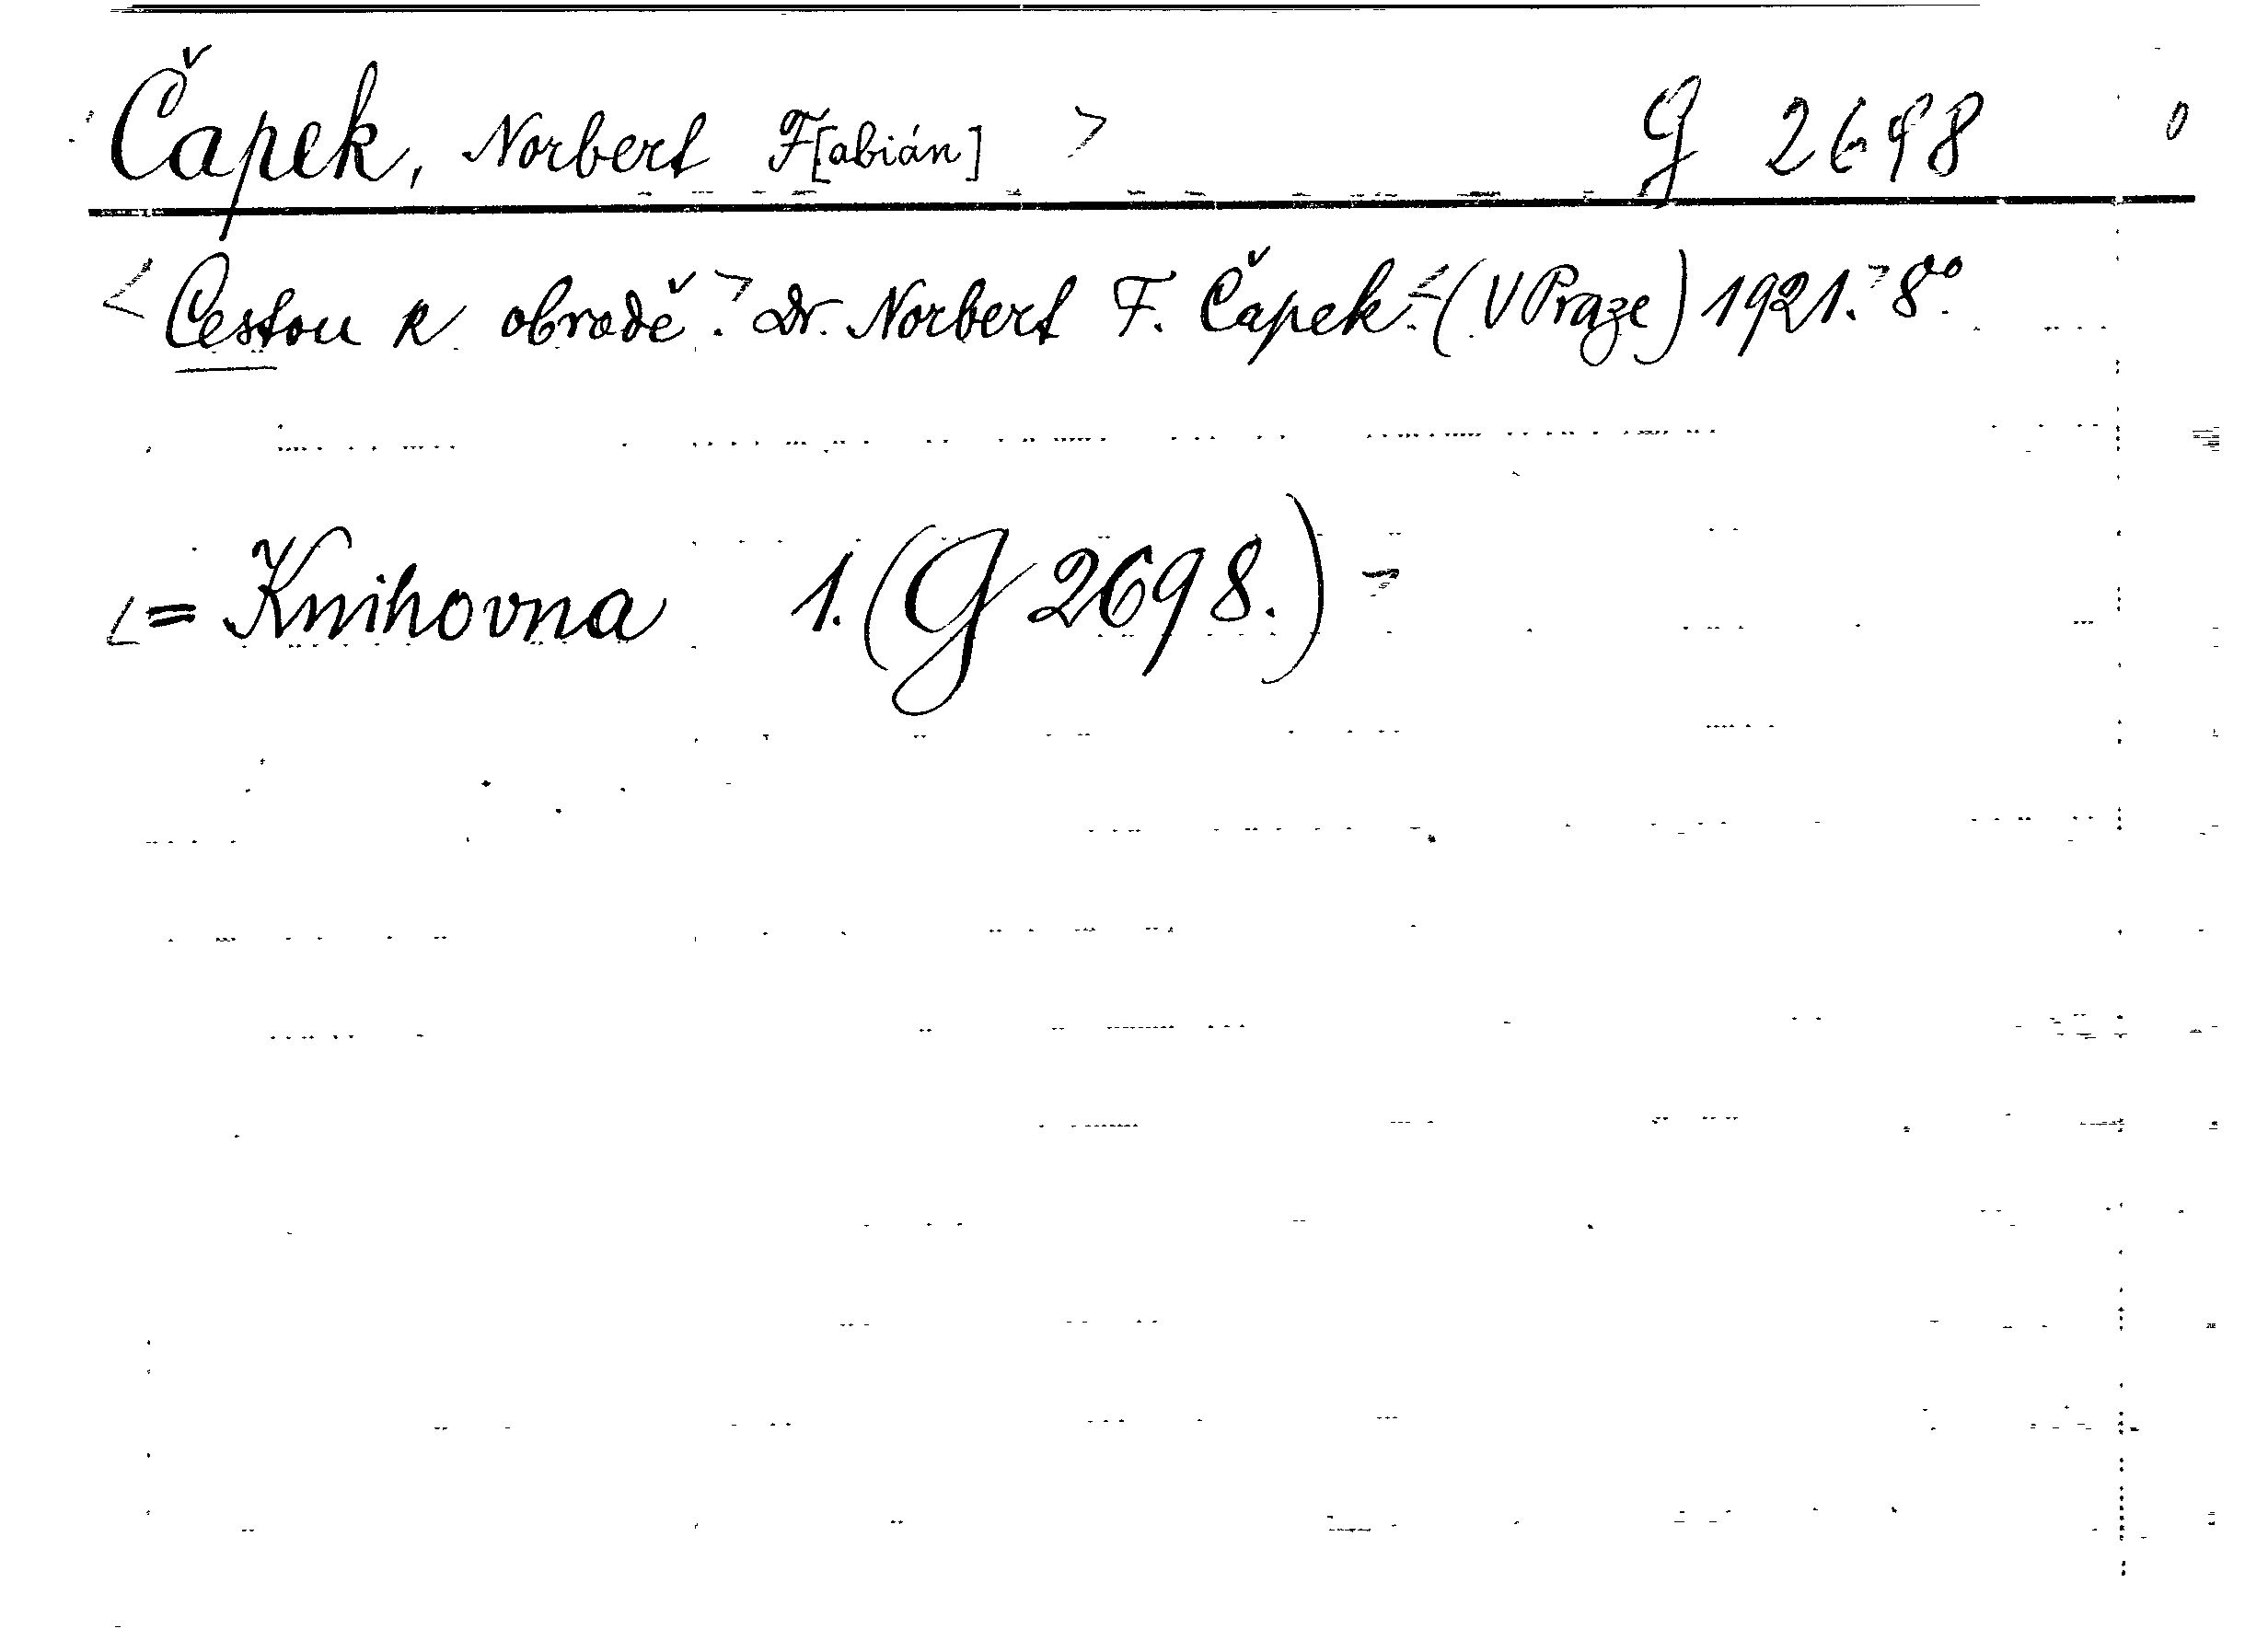 Čapek, Norbert F[abián] > G 2698
< Cestou k obrodě. > Dr. Norbert F. Čapek. < (V Praze) 1921. > 8°.
< = Knihovna 1. (G 2698.) >